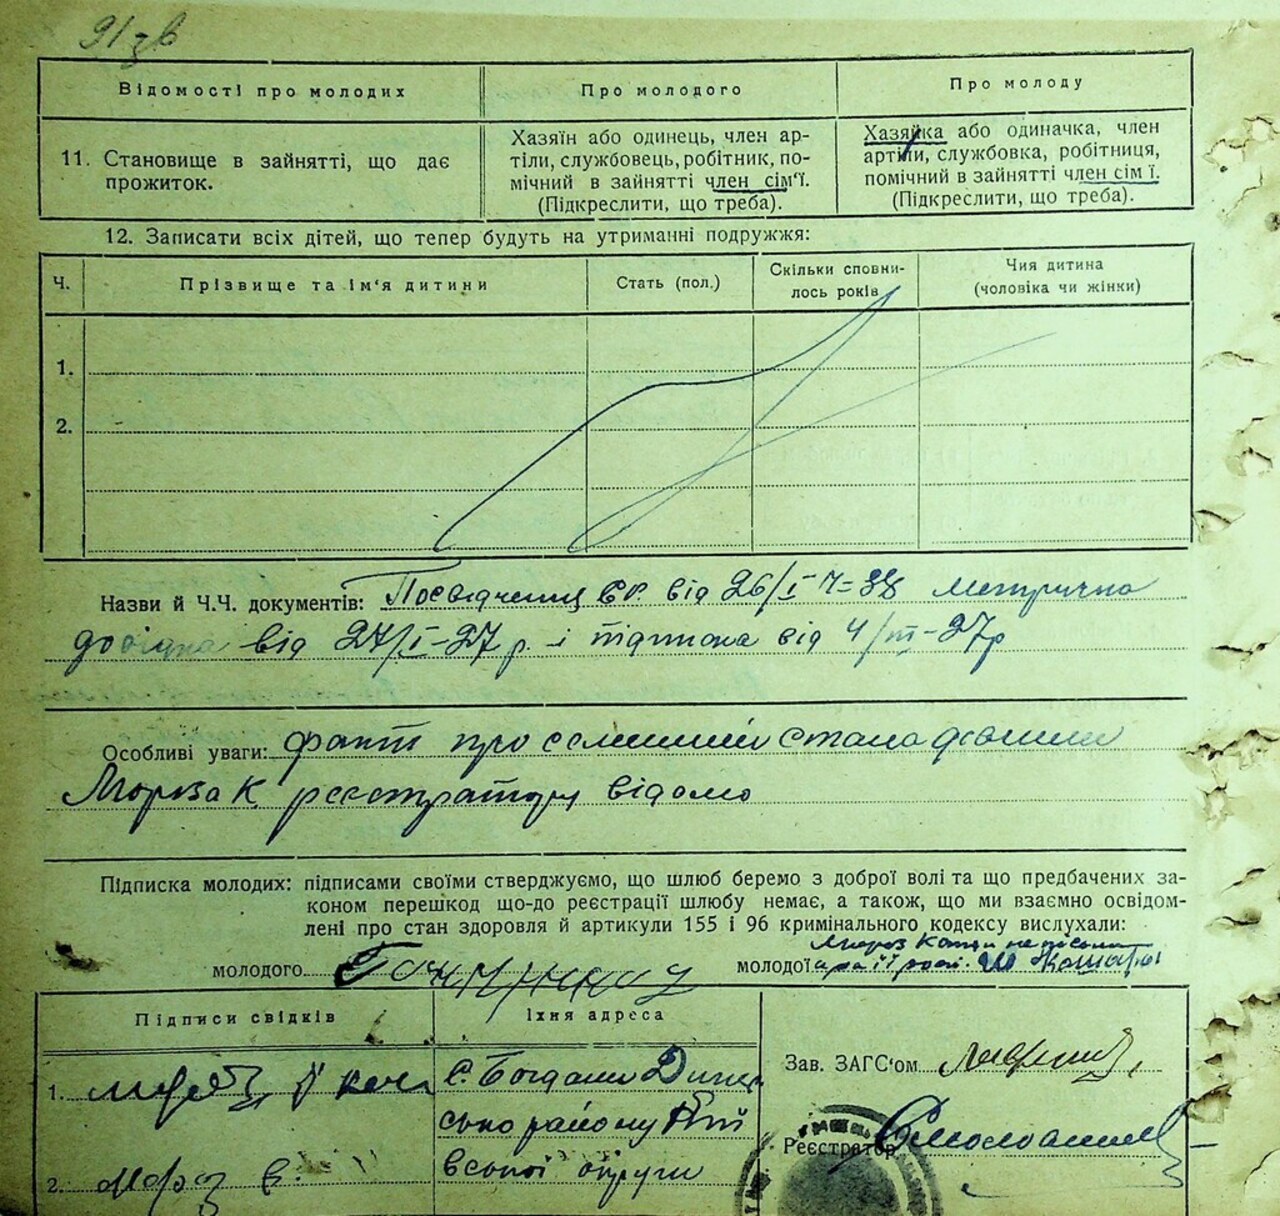 91 зв
Відомості про молодих
Про молодого
Про молоду
11. Становище в зайнятті, що дає
прожиток.
Хазяїн або одинець, член ар-
тіли, службовець, робітник, по-
мічний в зайнятті член сім'ї.
(Підкреслити, що треба).
Хазяйка або одиначка, член
артіли, службовка, робітниця,
помічний в зайнятті член сім ї.
(Підкреслити, що треба).
12. Записати всіх дітей, що тепер будуть на утриманні подружжя:
Ч.
Прізвище та ім'я дитини
Стать (пол.)
Скільки сповни-
лось років
Чия дитина
(чоловіка чи жінки)
1.
2.
Назви й Ч.Ч. документів: Посвідчення від 26/I Метрична
довідка від 27/I-27 р. і підписка від 4/III-27р
Особливі уваги: факт про семейний стан
Мороза К реєстратору відомо
Підписка молодих: підписами своїми стверджуємо, що шлюб беремо з доброї волі та що предбачених за-
коном перешкод що-до реєстрації шлюбу немає, а також, що ми взаємно освідом-
лені про стан здоровля й артикули 155 і 96 кримінального кодексу вислухали:
молодого
молодої Мороз
Підписи свідків
Їхня адреса
1.
с. Богдани Димер
ського району Київ
вської округи
2. Мороз в.
Зав. ЗАГС'ом
Реєстратор